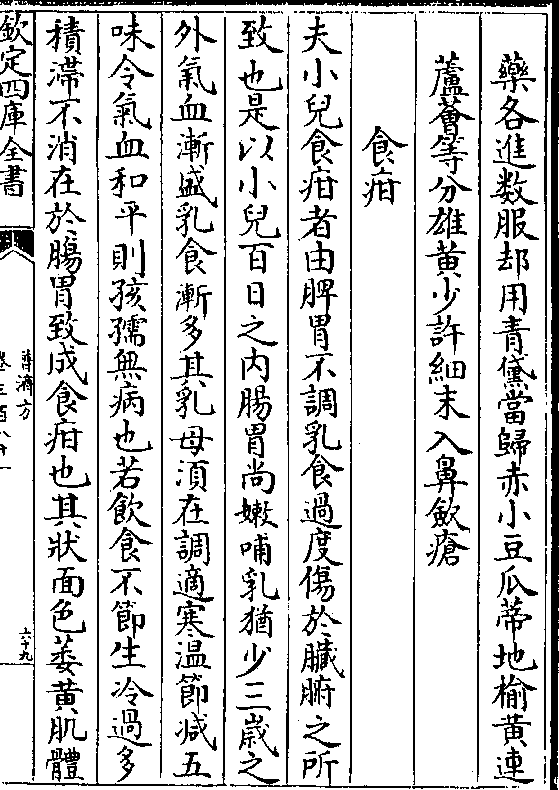 藥各進数服却用青黛當歸赤小豆瓜蒂地榆黄連
蘆薈等分雄黄少許細末入鼻斂瘡
食疳
夫小兒食疳者由脾胃不調乳食過度傷於臟腑之所
致也是以小兒百日之内腸胃尚嫩哺乳猶少三歲之
外氣血漸盛乳食漸多其乳母須在調適寒温節減五
味令氣血和平則孩孺無病也若飲食不節生冷過多
積滯不消在於腸胃致成食疳也其狀面色萎黄肌體
欽定四庫全書
普濟方
六十九